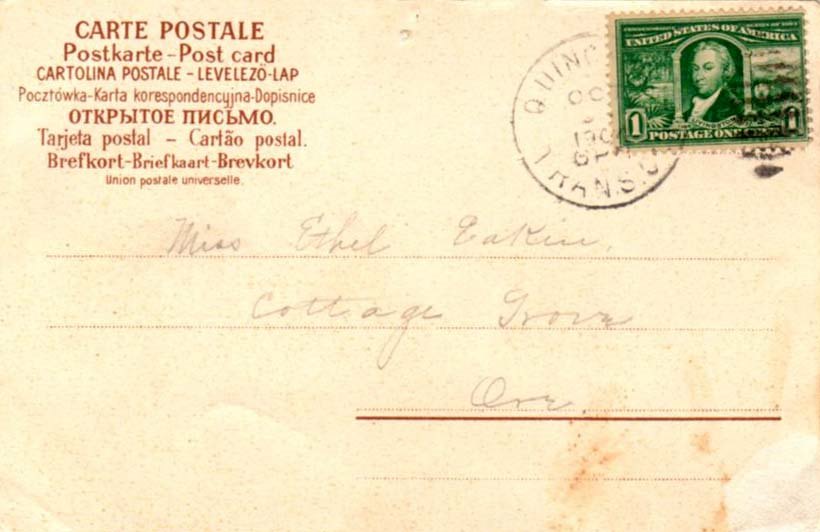 CARTE POSTALE
Postkarte – Post card
CARTOLINA POSTALE – LEVELEZŐ-LAP
Pocztówka-Karta korespondencyjna-Dopisnice
ОТКРЫТОЕ ПИСЬМО.
Tarjeta postal – Cartão postal.
Brefkort-Briefkaart-Brevkort
Union postale universelle.
UNITED STATES OF AMERICA
1 POSTAGE ONE CENT 1
TRANS.
Miss Ethel Eakin,
Cottage Grove
Ore